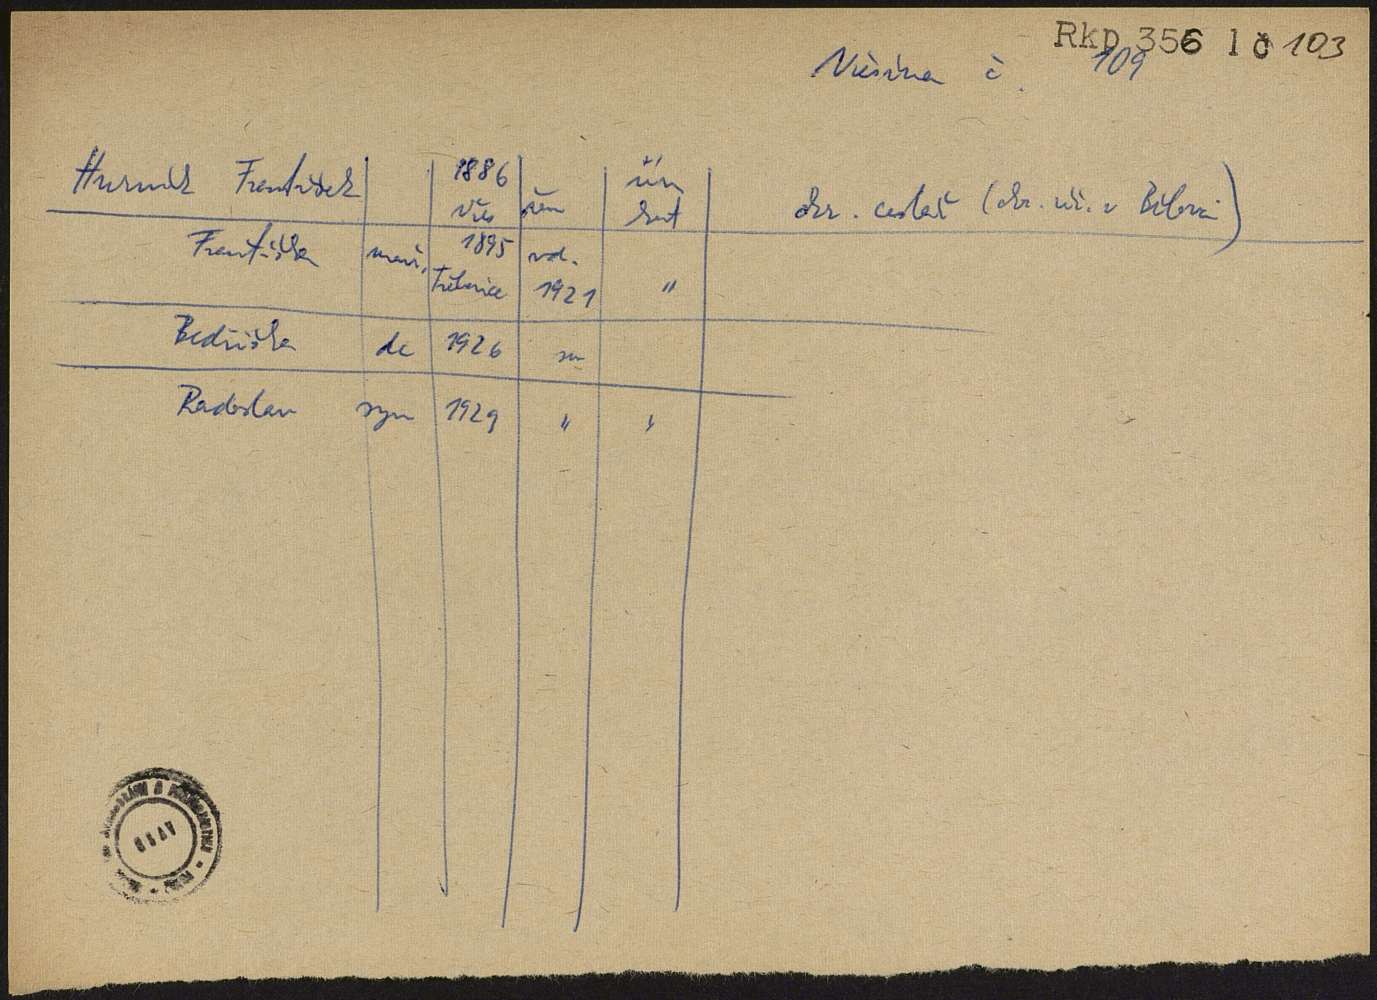 Rkp 356 l č 103
Vřesina č. 109
Hurník František 1886 Vřes žen řím kat okr. cestář (okr. úř. v Bílovci)
Františka manž. 1895 Třebovice vd. 1921 "
Bedřiška dc 1926 sv
Radoslav syn 1929 " "